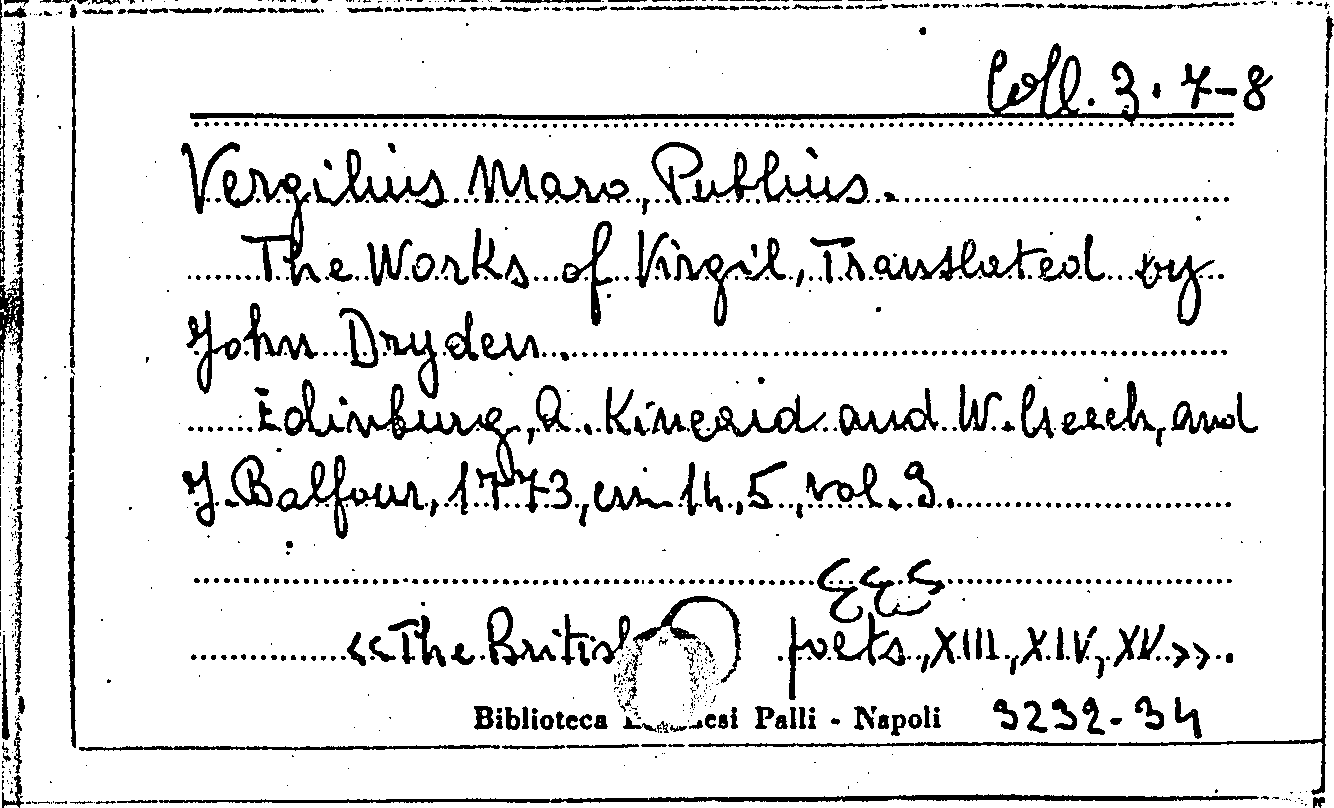 Coll. 3. 7-8
Vergilius Maro, Publius.
The Works of Virgil, Translated by
John Dryden.
Edinburg, A. Kincaid and W. Creech, and
J. Balfour, 1773, cm. 14,5, vol. 3.
«The British poets, XIII, XIV, XV».
Biblioteca Palli - Napoli 3232-34